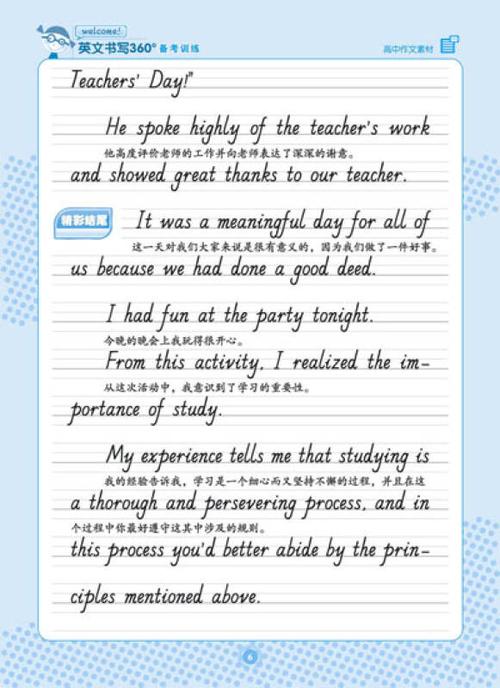 welcome!
英文书写360°备考训练
高中作文素材
Teachers' Day!"
He spoke highly of the teacher's work
他高度评价老师的工作并向老师表达了深深的谢意。
and showed great thanks to our teacher.
精彩结尾
It was a meaningful day for all of
这一天对我们大家来说是很有意义的，因为我们做了一件好事。
us because we had done a good deed.
I had fun at the party tonight.
今晚的晚会上我玩得很开心。
From this activity, I realized the im-
从这次活动中，我意识到了学习的重要性。
portance of study.
My experience tells me that studying is
我的经验告诉我，学习是一个细心而又坚持不懈的过程，并且在这
a thorough and persevering process, and in
个过程中你最好遵守这其中涉及的规则。
this process you'd better abide by the prin-
ciples mentioned above.
6